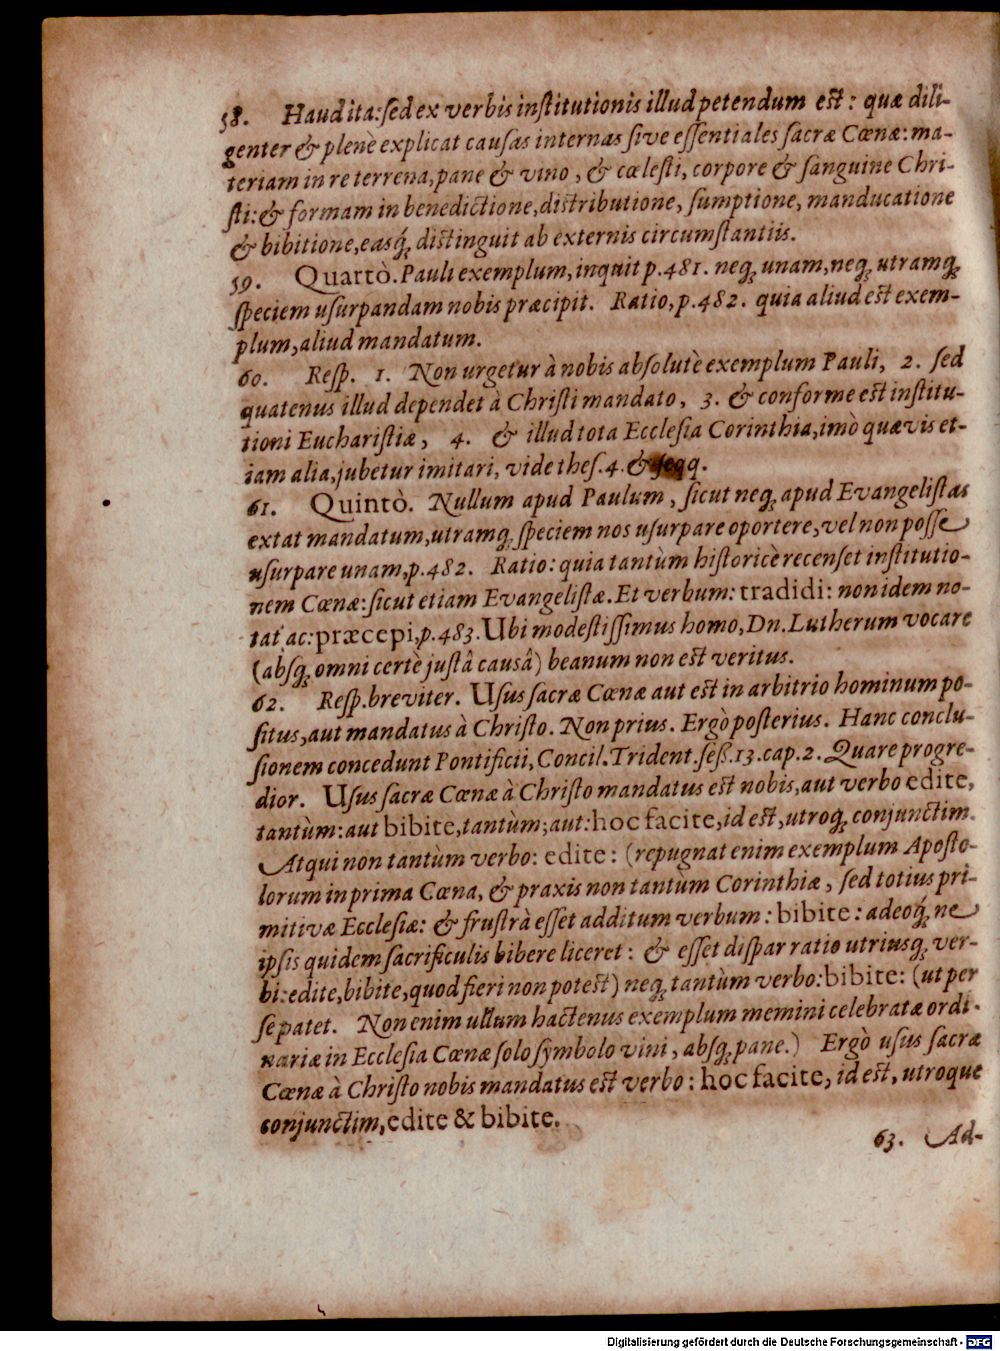 58. Haud ita: sed ex verbis institutionis illud petendum est: quæ dili-
genter & plenè explicat causas internas sive essentiales sacræ Cœnæ: ma-
teriam in re terrena, pane & vino, & cœlesti, corpore & sanguine Chri-
sti: & formam in benedictione, distributione, sumptione, manducatione
& bibitione, easq́; distinguit ab externis circumstantiis.
59. Quartò. Pauli exemplum, inquit p. 481. neq; unam, neq; utramq;
speciem usurpandam nobis præcipit. Ratio, p. 482. quia aliud est exem-
plum, aliud mandatum.
60. Resp. 1. Non urgetur à nobis absolutè exemplum Pauli, 2. sed
quatenus illud dependet à Christi mandato, 3. & conforme est institu-
tioni Eucharistiæ, 4. & illud tota Ecclesia Corinthia, imò quævis et-
iam alia, jubetur imitari, vide thes. 4. & seqq.
61. Quintò. Nullum apud Paulum, sicut neq; apud Evangelistas
extat mandatum, utramq; speciem nos usurpare oportere, vel non posse
usurpare unam, p. 482. Ratio: quia tantùm historicè recenset institutio-
nem Cœnæ: sicut etiam Evangelistæ. Et verbum: tradidi: non idem no-
tat ac: præcepi, p. 483. Ubi modestissimus homo, Dn. Lutherum vocare
(absq; omni certè justâ causâ) beanum non est veritus.
62. Resp. breviter. Usus sacræ Cœnæ aut est in arbitrio hominum po-
situs, aut mandatus à Christo. Non prius. Ergò posterius. Hanc conclu-
sionem concedunt Pontificii, Concil. Trident. seß. 13. cap. 2. Quare progre-
dior. Usus sacræ Cœnæ à Christo mandatus est nobis, aut verbo edite,
tantùm: aut bibite, tantùm; aut: hoc facite, id est, utroq; conjunctim.
Atqui non tantùm verbo: edite: (repugnat enim exemplum Aposto-
lorum in prima Cœna, & praxis non tantùm Corinthiæ, sed totius pri-
mitivæ Ecclesiæ: & frustrà esset additum verbum: bibite: adeoq́; ne
ipsis quidem sacrificulis bibere liceret: & esset dispar ratio utriusq; ver-
bi: edite, bibite, quod fieri non potest) neq; tantùm verbo: bibite: (ut per
se patet. Non enim ullum hactenus exemplum memini celebratæ ordi-
nariæ in Ecclesia Cœnæ solo symbolo vini, absq; pane.) Ergò usus sacræ
Cœnæ à Christo nobis mandatus est verbo: hoc facite, id est, utroque
conjunctim, edite & bibite.
63. Ad-
Digitalisierung gefördert durch die Deutsche Forschungsgemeinschaft - DFG